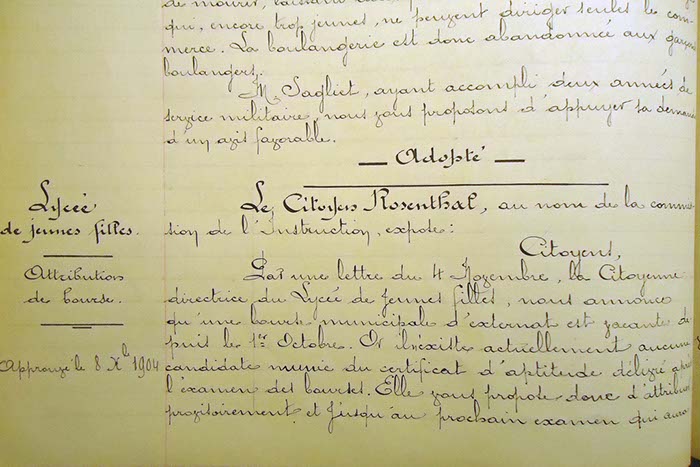 de mourir, laissant
qui, encore trop jeunes, ne peuvent diriger seules le com-
merce. La boulangerie est donc abandonnée aux garçons
boulangers.
M. Sagliet, ayant accompli deux années de
service militaire, nous vous proposons d'appuyer sa demande
d'un avis favorable.
— Adopté —
Lycée
de jeunes filles.
Attribution
de bourse.
Approuvé le 8 Xbre 1904
Le Citoyen Rosenthal, au nom de la commis-
sion de l'Instruction, expose:
Citoyens,
Par une lettre du 4 Novembre, la Citoyenne
directrice du Lycée de Jeunes filles, nous annonce
qu'une bourse municipale d'externat est vacante de-
puis le 1er Octobre. Or il existe actuellement aucune
candidate munie du certificat d'aptitude délivré après
l'examen des bourses. Elle vous propose donc d'attribuer
provisoirement et jusqu'au prochain examen qui aura